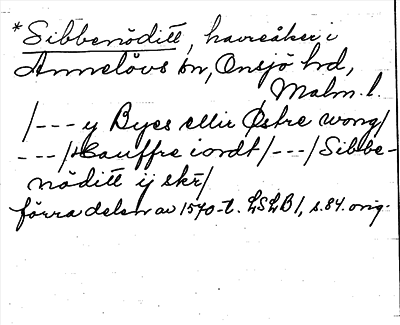 *Sibbenöditt, havreåker i
Annelövs sn, Onsjö hd,
Malm. l.
/--- y Byes ellir Østre wong/
---/Hauffre iordt/---/Sibbe-
nöditt ij skr/
förra delen av 1570-t. LSLB1, s. 84. orig.